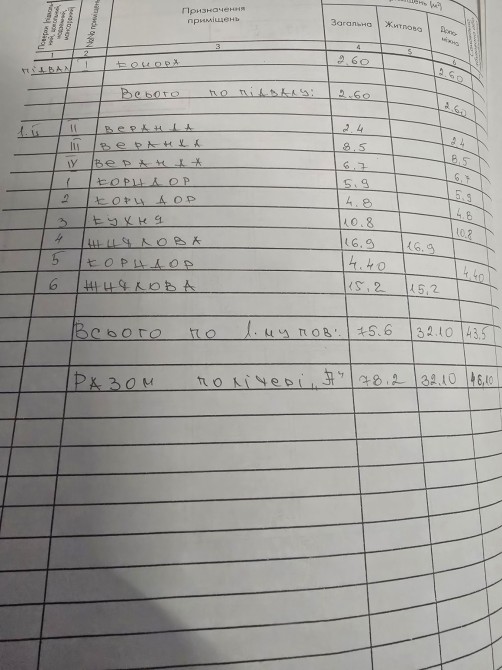 Призначення приміщень
Загальна Житлова Допо-міжна
№№ приміщень
1 2 3 4 5 6
підвал 1 комора 2.60 2.60
Всього по підвалу: 2.60 2.60
1й II веранда 2.4 2.4
III веранда 8.5 8.5
IV веранда 6.7 6.7
1 коридор 5.9 5.9
2 коридор 4.8 4.8
3 кухня 10.8 10.8
4 житлова 16.9 16.9
5 коридор 4.40 4.40
6 житлова 15.2 15.2
Всього по 1.му пов.: 75.6 32.10 43.5
Разом по літері „А" 78.2 32.10 46.10